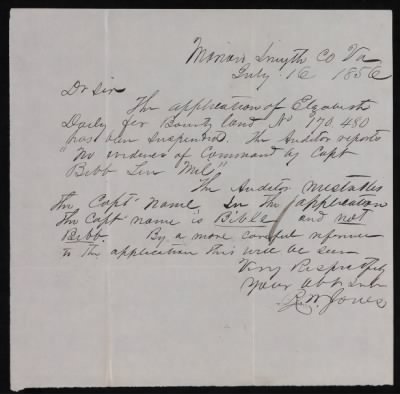 Marion, Smyth Co Va
July 16 1856
Dr Sir
The application of Elizabeth
Daily for Bounty land No 190.480
has been Suspended. The Auditor reports
"No evidence of Command by Capt
Bibb Ten Mil"
The Auditor mistakes
the Capt name In the application
the Capt name is Bible and not
Bibb. By a more careful reference
to the application this will be seen
Very Respectfully
Your Obt Svt
R. W. Jones